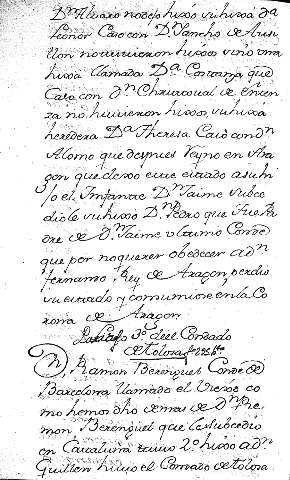 Dn Alvaro no dejo hixos su hixa Da
Leonor Caso con Dn Sancho de
llon no tuvieron hixos sino una
hixa llamada Da Constanza que
Caso con dn Christoval de
za no huvieron hixos, su hixa
heredera Da Theresa Caso con dn
Alonso que despues Reyno en Ara
gon que dexo este estado a su hi
jo el Infante Dn Jaime subce
diole su hixo Dn Pedro que fue Pa
dre de Dn Jaime ultimo Conde
que por no querer obedecer a dn
fernando Rey de Aragon perdio
su estado y consumiose en la Co
rona de Aragon
3o del Condado
de tolosa
Dn Ramon Berenguer Conde de
Barcelona llamado el Viexo co
mo hemos dho demas de Dn Re
mon Berenguel que le subcedio
en Cataluña tuvo 2o hixo a dn
Guillen hizo el Condado de tolosa